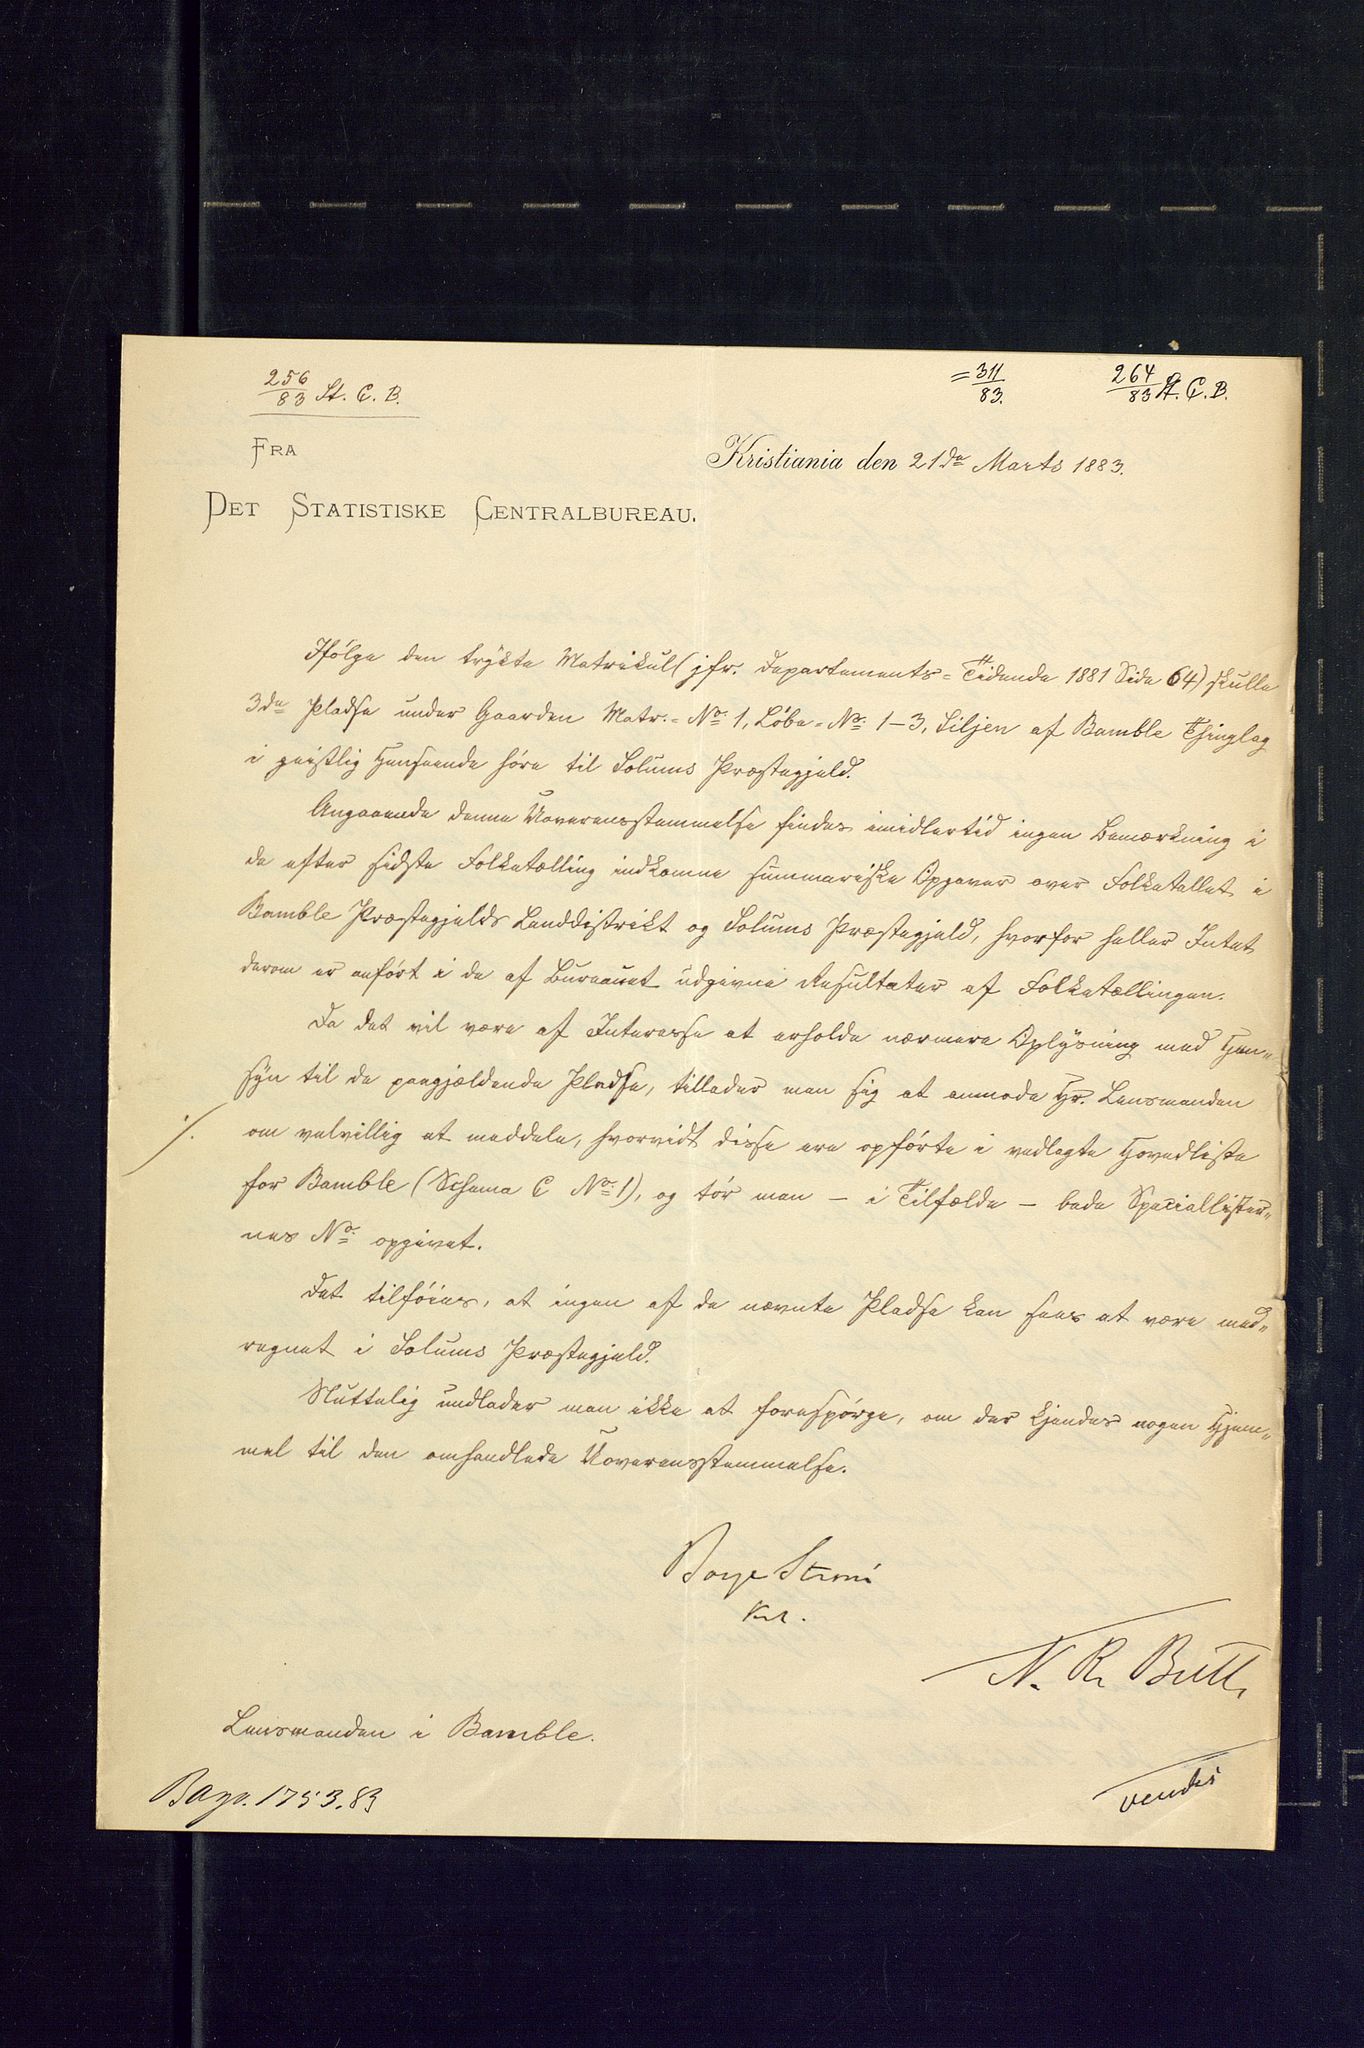 256/83 St. C. B.
= 311/83.
264/83 St. C. B.
FRA
Kristiania den 21de Marts 1883.
DET STATISTISKE CENTRALBUREAU.
Ifölge den trykte Matrikul (jfr. Departements-Tidende 1881 Side 64) skulle
3de Pladse under Gaarden Matr.-No. 1, Löbe-No. 1-3, Siljen af Bamble Thinglag
i geistlig Henseende höre til Solums Præstegjeld.
Angaaende denne Uoverensstemmelse findes imidlertid ingen Bemærkning i
de efter sidste Folketælling indkomne summariske Opgaver over Folketallet i
Bamble Præstegjelds Landdistrikt og Solums Præstegjeld, hvorfor heller Intet
derom er anfört i de af Bureauet udgivne Resultater af Folketællingen.
Da det vil være af Interesse at erholde nærmere Oplysning med Hen-
syn til de paagjældende Pladse, tillader man sig at anmode Hr. Lensmanden
om velvillig at meddele, hvorvidt disse ere opförte i vedlagte Hovedliste
for Bamble (Schema C No. 1), og tör man - i Tilfælde - bede Speciallister-
nes No. opgivet.
Det tilföies, at ingen af de nævnte Pladse kan sees at være med-
regnet i Solums Præstegjeld.
Sluttelig undlader man ikke at forespörge, om der kjendes nogen Hjem-
mel til den omhandlede Uoverensstemmelse.
Boye Strøm
Kst.
N. R. Bull
Lensmanden i Bamble.
1753.83
vendes